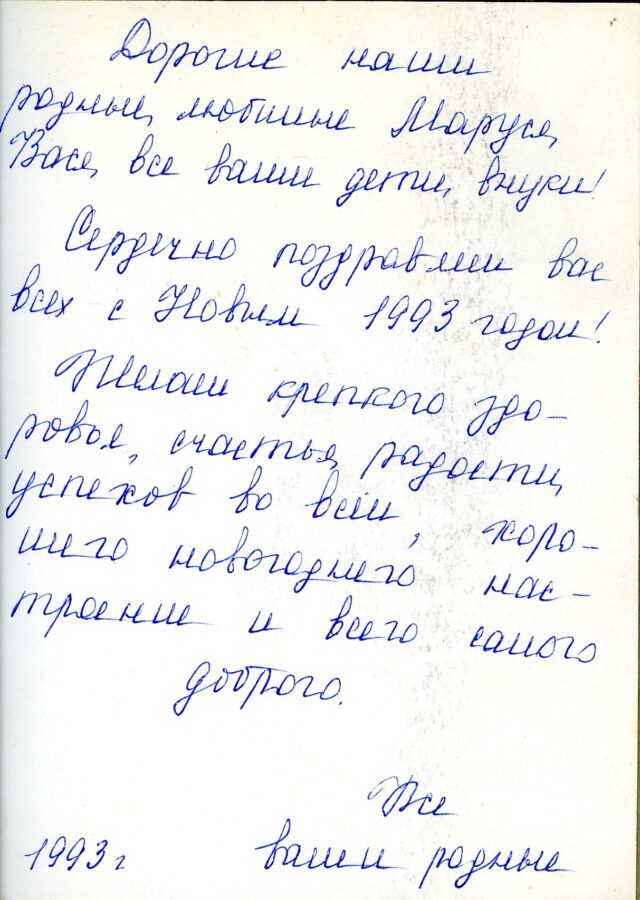 Дорогие наши
родные, любимые Маруся,
Вася, все ваши дети, внуки!
Сердечно поздравляем вас
всех с Новым 1993 годом!
Желаем крепкого здо-
ровья, счастья, радости,
успехов во всём, хоро-
шего новогоднего нас-
троение и всего самого
доброго.
Все
1993 г ваши родные